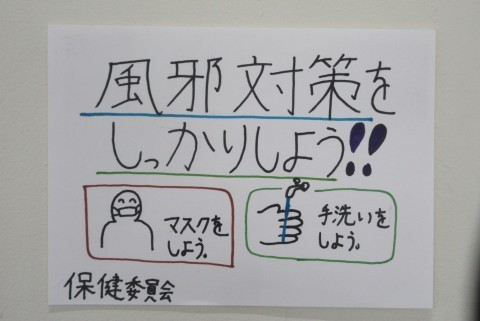 風邪対策を
しっかりしよう!!
マスクを
しよう。
手洗いを
しよう。
保健委員会